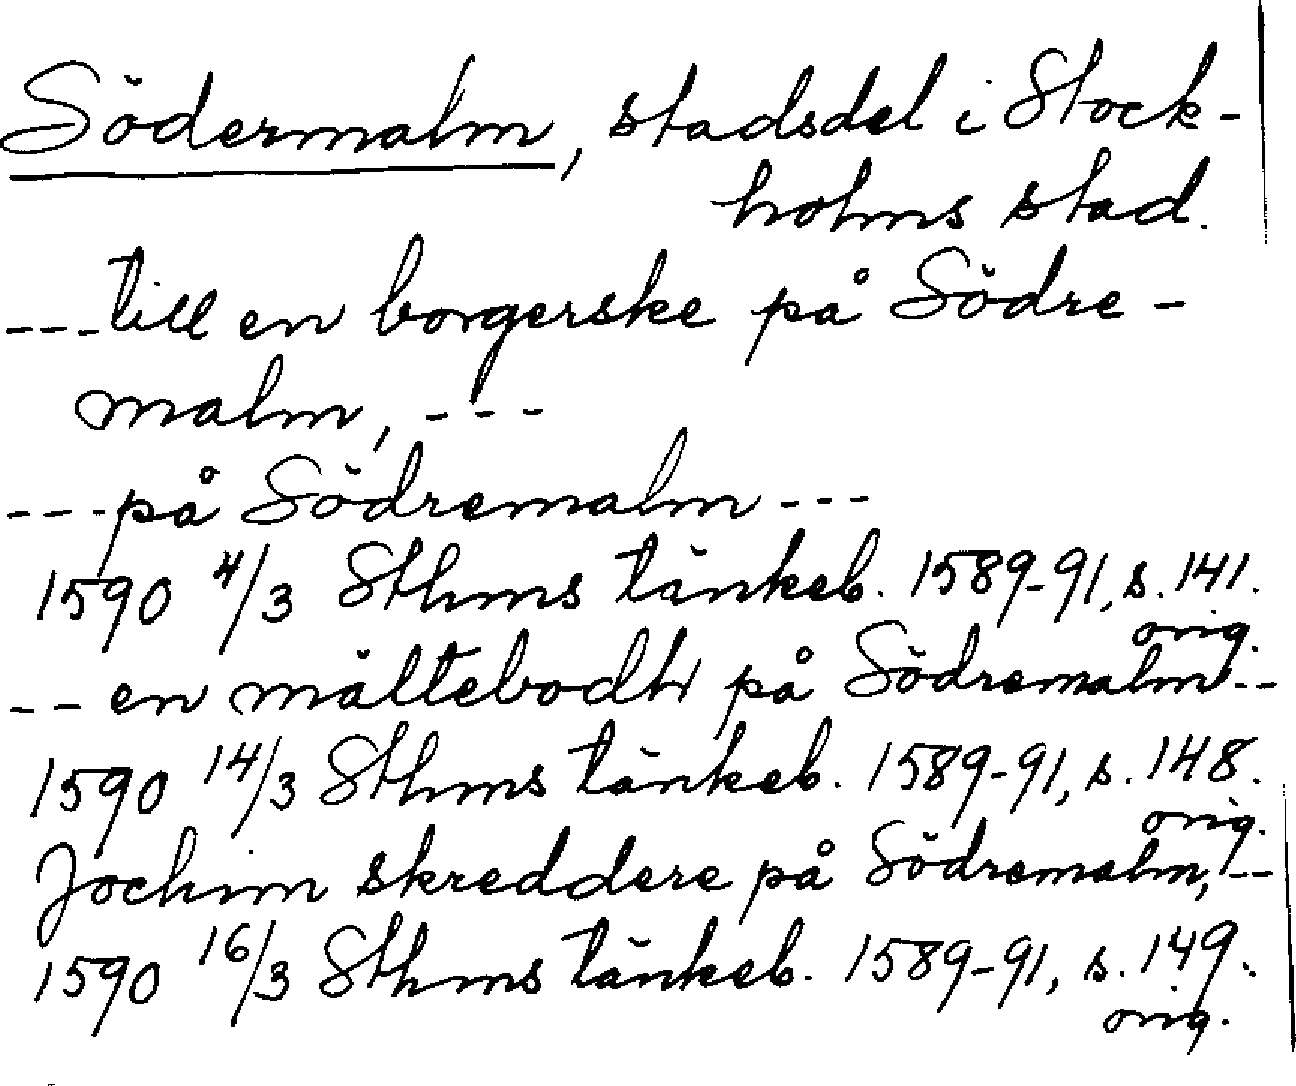 Södermalm, stadsdel i Stock-
holms stad.
---till en borgerske på Södre-
malm, ---
---på Södremalm---
1590 4/3 Sthms tänkeb. 1589-91, s. 141.
orig.
-- en mältebodh på Södremalm--
1590 14/3 Sthms tänkeb. 1589-91, s. 148.
orig.
Jochim skreddere på Södremalm,--
1590 16/3 Sthms tänkeb. 1589-91, s. 149.
orig.